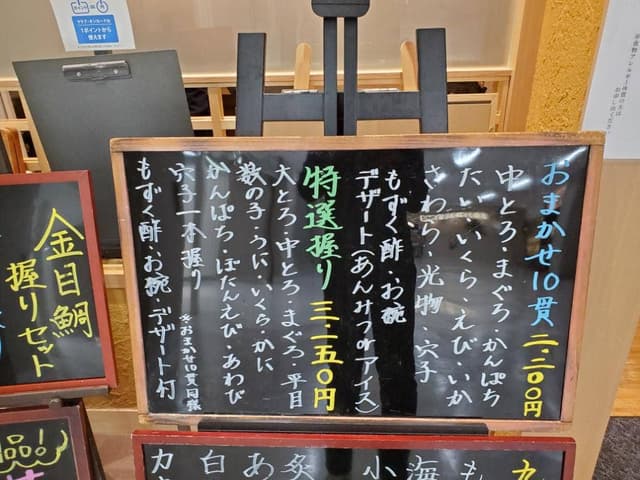 おまかせ10貫 二・二〇〇円
中とろ・まぐろ・かんぱち
たい・いくら・えび・いか
さわら・光物・穴子
もずく酢・お椀
デザート(あんみつorアイス)
特選握り 三・一五〇円
大とろ・中とろ・まぐろ・平目
数の子・うに・いくら・かに
かんぱち・ぼたんえび・あわび
穴子一本握り
※おまかせ10貫同様
もずく酢・お椀・デザート付
金目鯛
握りセット
1ポイントから
使えます